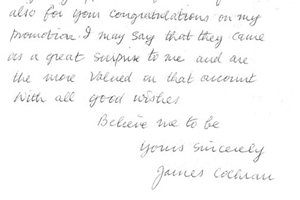 also for your congratulations on my
promotion. I may say that they came
as a great surprise to me and are
the more valued on that account
With all good wishes
Believe me to be
Yours sincerely
James Cochran